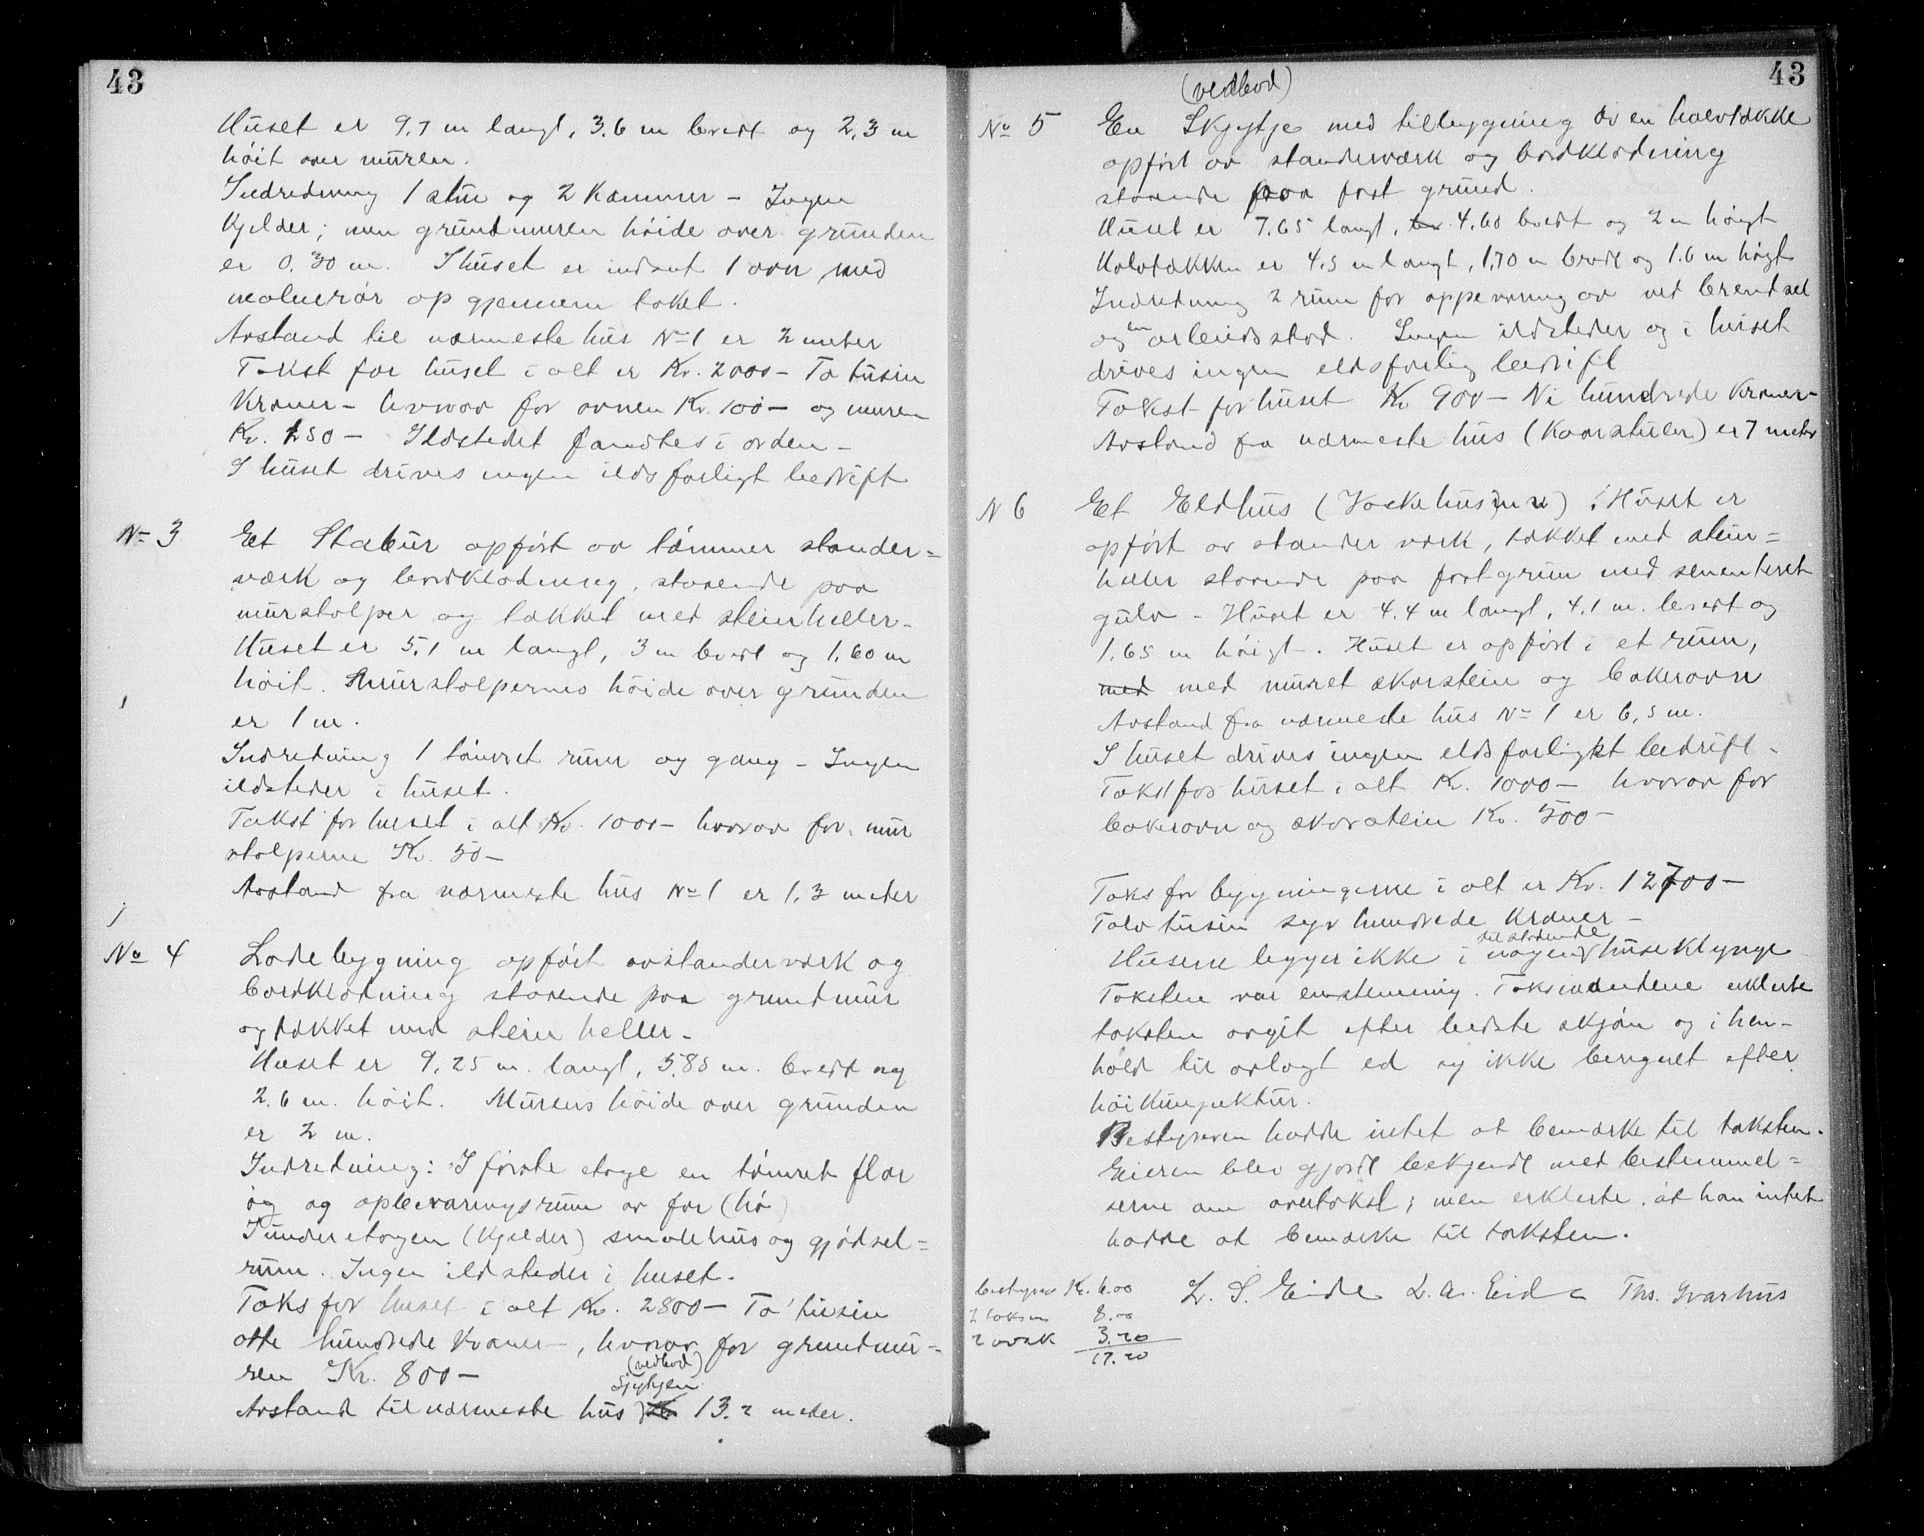 43
Huset er 9,7 m langt, 3,6 m bredt og 2,3 m
höit over muren.
Indredning 1 stue og 2 Kammer – Ingen
Kjelder; men grundmuren höide over grunden
er 0,30 m. I huset er indsat 1 ovn med
op gjennem taket.
Avstand til nærmeste hus No 1 er 2 meter
Takst for huset i alt er Kr. 2000 – To tusin
Kroner – hvorav for ovnen Kr. 100 – og muren
Kr. 150 – Ildstedet fandtes i orden –
I huset drives ingen ildsfarligt bedrift
No 3 Et Stabur opfört av tömmer stander=
værk og bordklædning, staaende paa
murstolper og tækket med steinheller –
Huset er 5,1 m langt, 3 m bredt og 1,60 m
höit. Murstolpernes höide over grunden
er 1 m.
Indredning 1 tömret rum og gang – Ingen
ildsteder i huset.
Takst for huset i alt Kr. 1000 – hvorav for mur
stolperne Kr. 50 –
Avstand fra nærmeste hus No 1 er 1,3 meter
No 4 Lödebygning opfört av standerværk og
bordklædning staaende paa grundmur
og tækket med stein heller –
Huset er 9,25 m. langt, 5,85 m. bredt og
2,6 m. höit. Murens höide over grunden
er 2 m.
Indredning: I förste etage en tömret flor
og og opbevaringsrum av for (hö)
I underetagen (Kjelder) smalehus og gjödsel=
rum. Ingen ildsteder i huset –
Taks for huset i alt Kr. 2800 – To tusin
otte hundrede Kroner –, hvorav for grundmu=
ren Kr. 800 –
(vedbod)
Sjykjen
Avstand til nærmeste hus 13,2 meter.
43
(vedbod)
No 5 En Skjykje med tilbygning av en halvtække
opfört av standerværk og bordklædning
staaende paa fast grund.
Huset er 7,65 langt, 4,60 bredt og 2 m högt
Halvtækken er 4,5 m langt, 1,70 m bredt og 1,6 m högt
Indredning 2 rum for oppevaring av ved brendsel
og en arbeidsstad. Ingen ildsteder og i huset
drives ingen eldsfarlig bedrift
Takst for huset Kr 900 – Ni hundrede Kroner –
Avstand fra nærmeste hus (Kaarstuen) er 7 meter
N 6 Et Eldhus (Vaskehus) . Huset er
opfört av stander værk, tækket med stein=
heller staaende paa fast grun med sementeret
gulv – Huset er 4,4 m langt, 4,1 m. bredt og
1,65 m höigt. Huset er opfört i et rum,
med med muret skorstein og bakerovn
Avstand fra nærmeste hus No 1 er 6,5 m.
I huset drives ingen eldsfarligt bedrift –
Takst for huset i alt Kr. 1000 – hvorav for
bakerovn og skorstein Kr. 500 –
Taks for bygningerne i alt er Kr. 12700 –
Tolv tusin syv hundrede Kroner –
Husene legger ikke i nogen huseklynge
Taksten var enstemmig. Taksmændene erklerte
taksten avgit efter bedste skjön og i hen–
hold til avlagt ed og ikke beregnet efter
höikunjuktur.
Bestyreren hadde intet at bemærke til taksten.
Eieren blev gjort bekjendt med bestemmel=
serne om overtakst; men erklerte, at han intet
hadde at bemærke til taksten.
bestyrer Kr. 6.00 L. S. Eide L. A. Eide Ths. Ivarhus
2 8.00
2 3.20
17.20